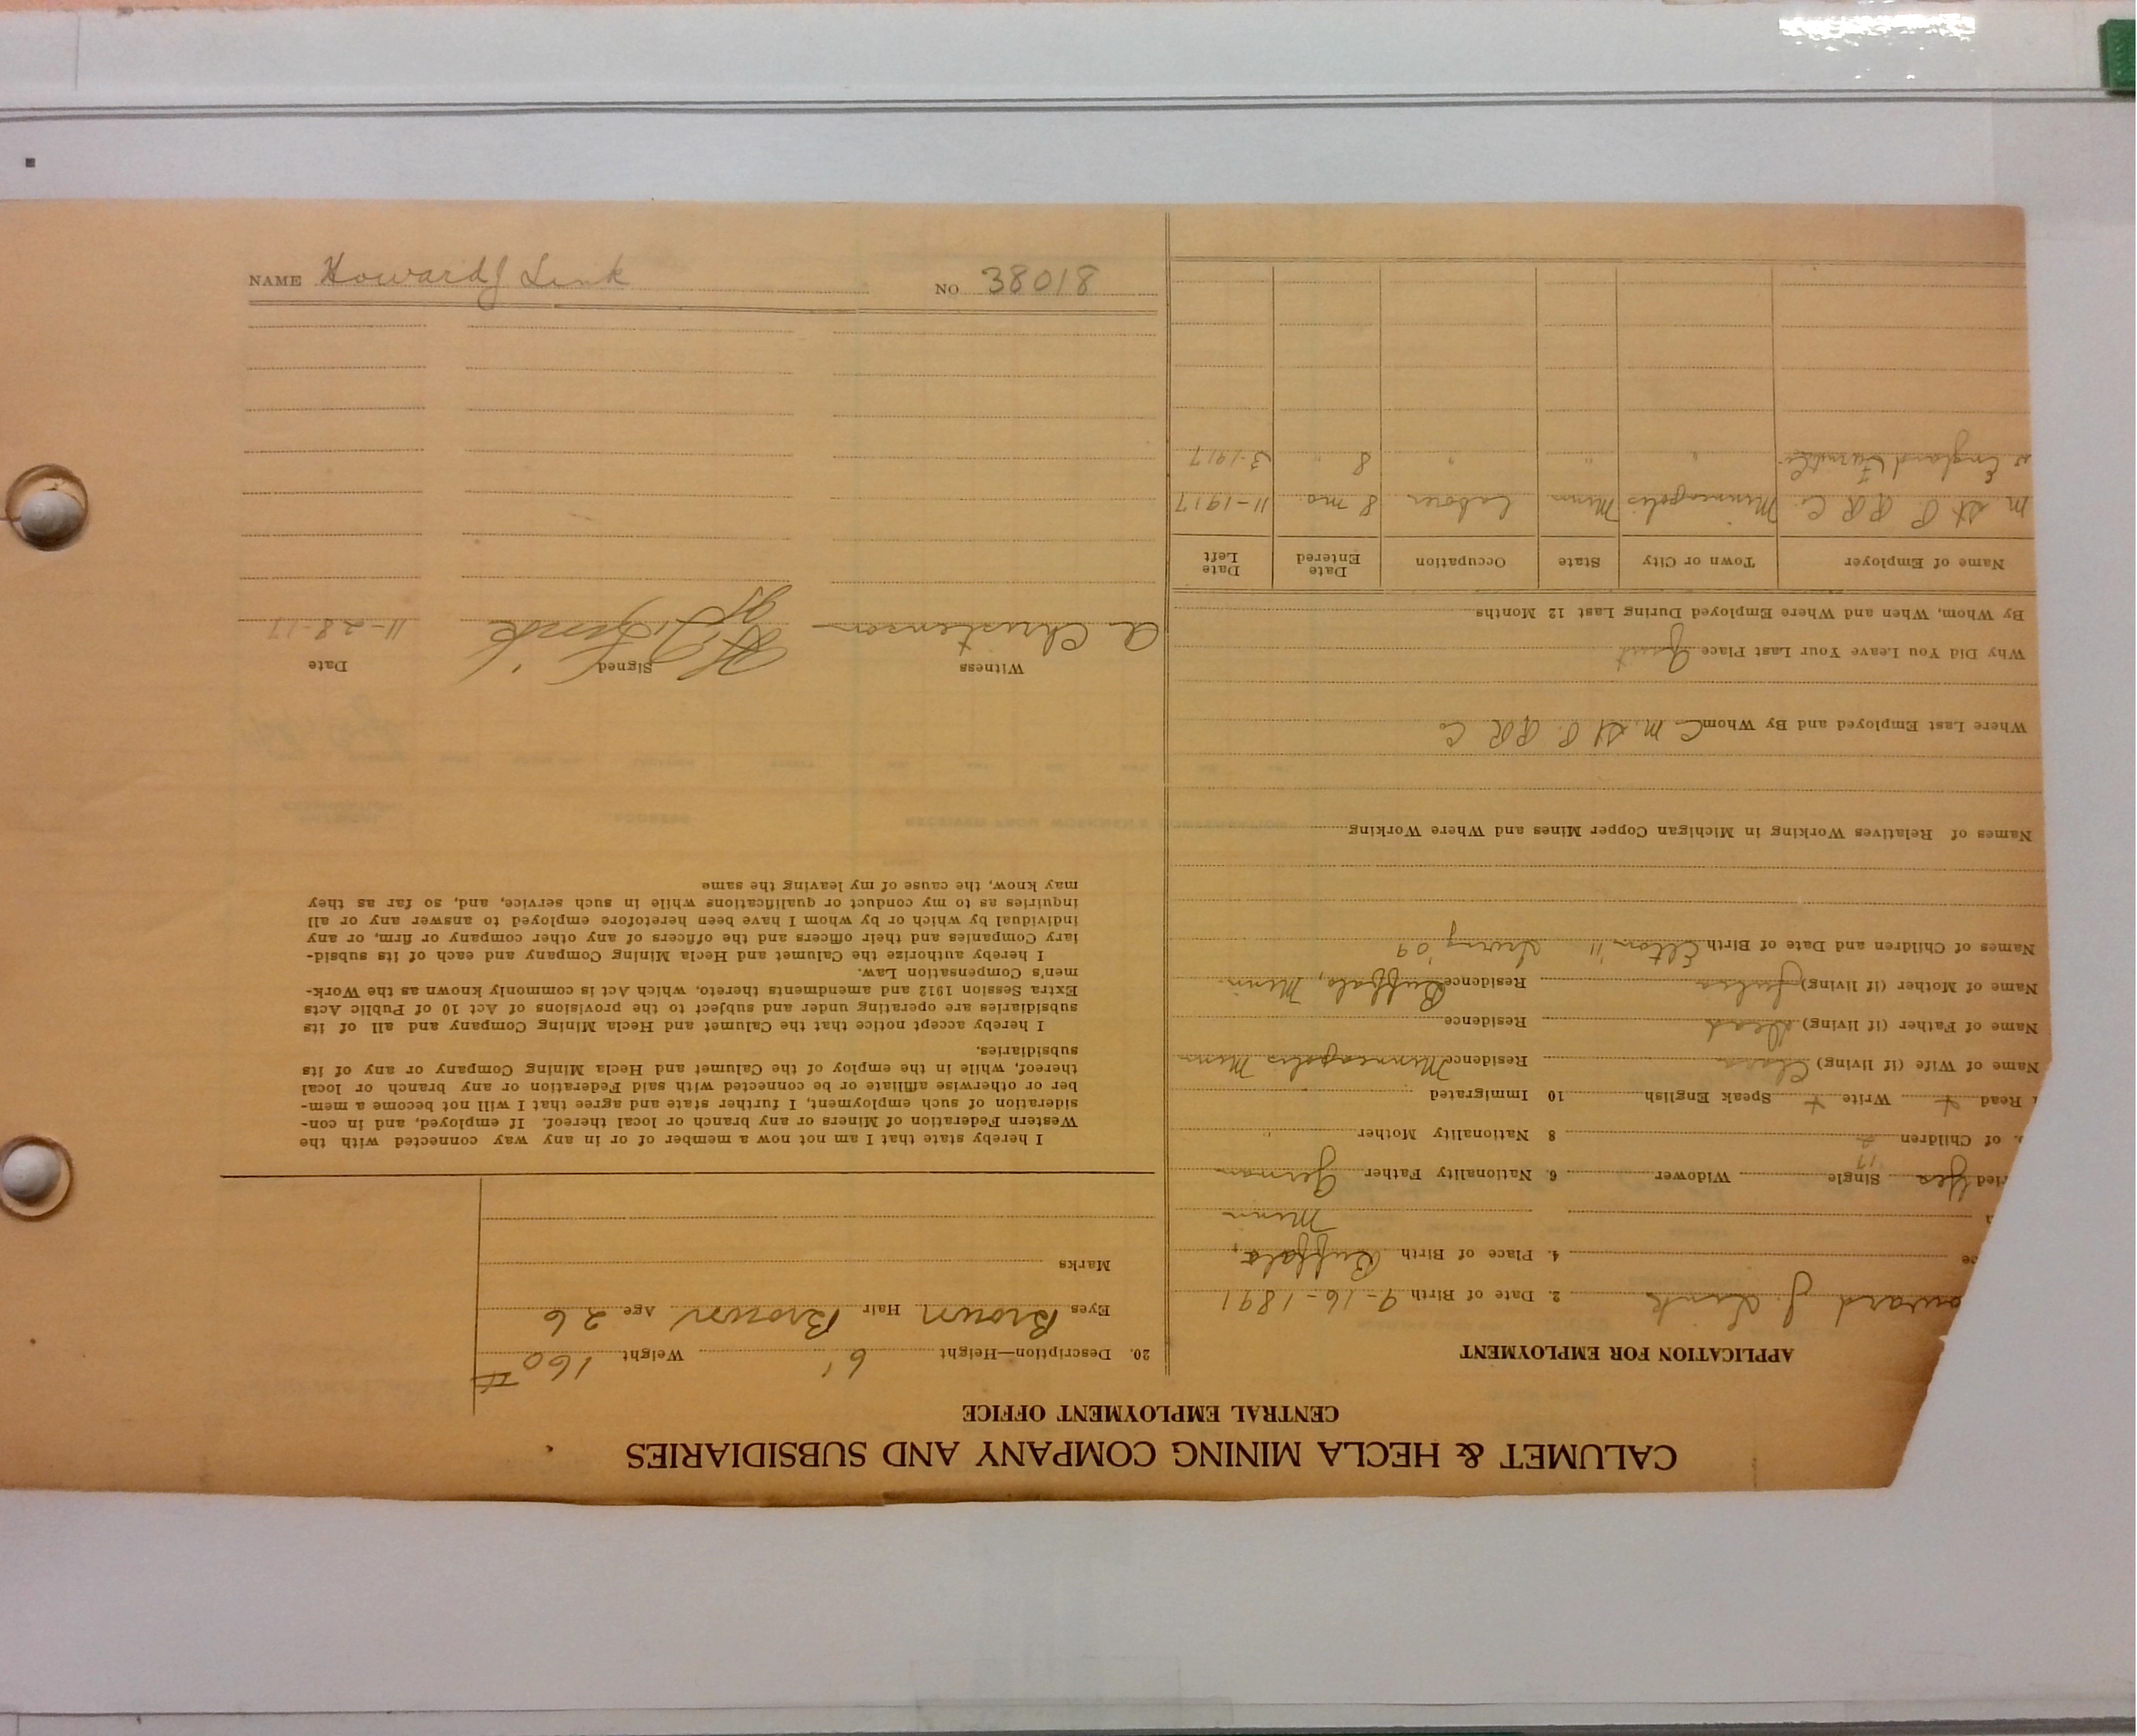 CALUMET & HECLA MINING COMPANY AND SUBSIDIARIES
CENTRAL EMPLOYMENT OFFICE
APPLICATION FOR EMPLOYMENT
oward J. Link 2. Date of Birth 9-16-1891
ce 4. Place of Birth Buffalo,
Minn
ried Yes Single Widower 6. Nationality Father German
. of Children 2 8 Nationality Mother "
Read + Write + Speak English 10 Immigrated
Name of Wife (if living) Clara Residence Minneapolis Minn
Name of Father (if living) Dead Residence
Name of Mother (if living) Residence Buffalo, Minn
Names of Children and Date of Birth Elton '11 Irving '09
Names of Relatives Working in Michigan Copper Mines and Where Working
Where Last Employed and By Whom C M. St P. RR Co
Why Did You Leave Your Last Place Quit
By Whom, When and Where Employed During Last 12 Months
Name of Employer Town or City State Occupation Date Entered Date Left
M St P RR Co Minneapolis Minn Laborer 8 mo. 11-1917
England " " " 8 " 3-1917
20. Description—Height 6' Weight 160 #
Eyes Brown Hair Brown Age 26
Marks
I hereby state that I am not now a member of or in any way connected with the
Western Federation of Miners or any branch or local thereof. If employed, and in con-
sideration of such employment, I further state and agree that I will not become a mem-
ber or otherwise affiliate or be connected with said Federation or any branch or local
thereof, while in the employ of the Calumet and Hecla Mining Company or any of its
subsidiaries.
I hereby accept notice that the Calumet and Hecla Mining Company and all of its
subsidiaries are operating under and subject to the provisions of Act 10 of Public Acts
Extra Session 1912 and amendments thereto, which Act is commonly known as the Work-
men's Compensation Law.
I hereby authorize the Calumet and Hecla Mining Company and each of its subsid-
iary Companies and their officers and the officers of any other company or firm, or any
individual by which or by whom I have been heretofore employed to answer any or all
inquiries as to my conduct or qualifications while in such service, and, so far as they
may know, the cause of my leaving the same
Witness Signed Date
A Christenson H. J. Link 11-28-17
NAME Howard J Link NO 38018